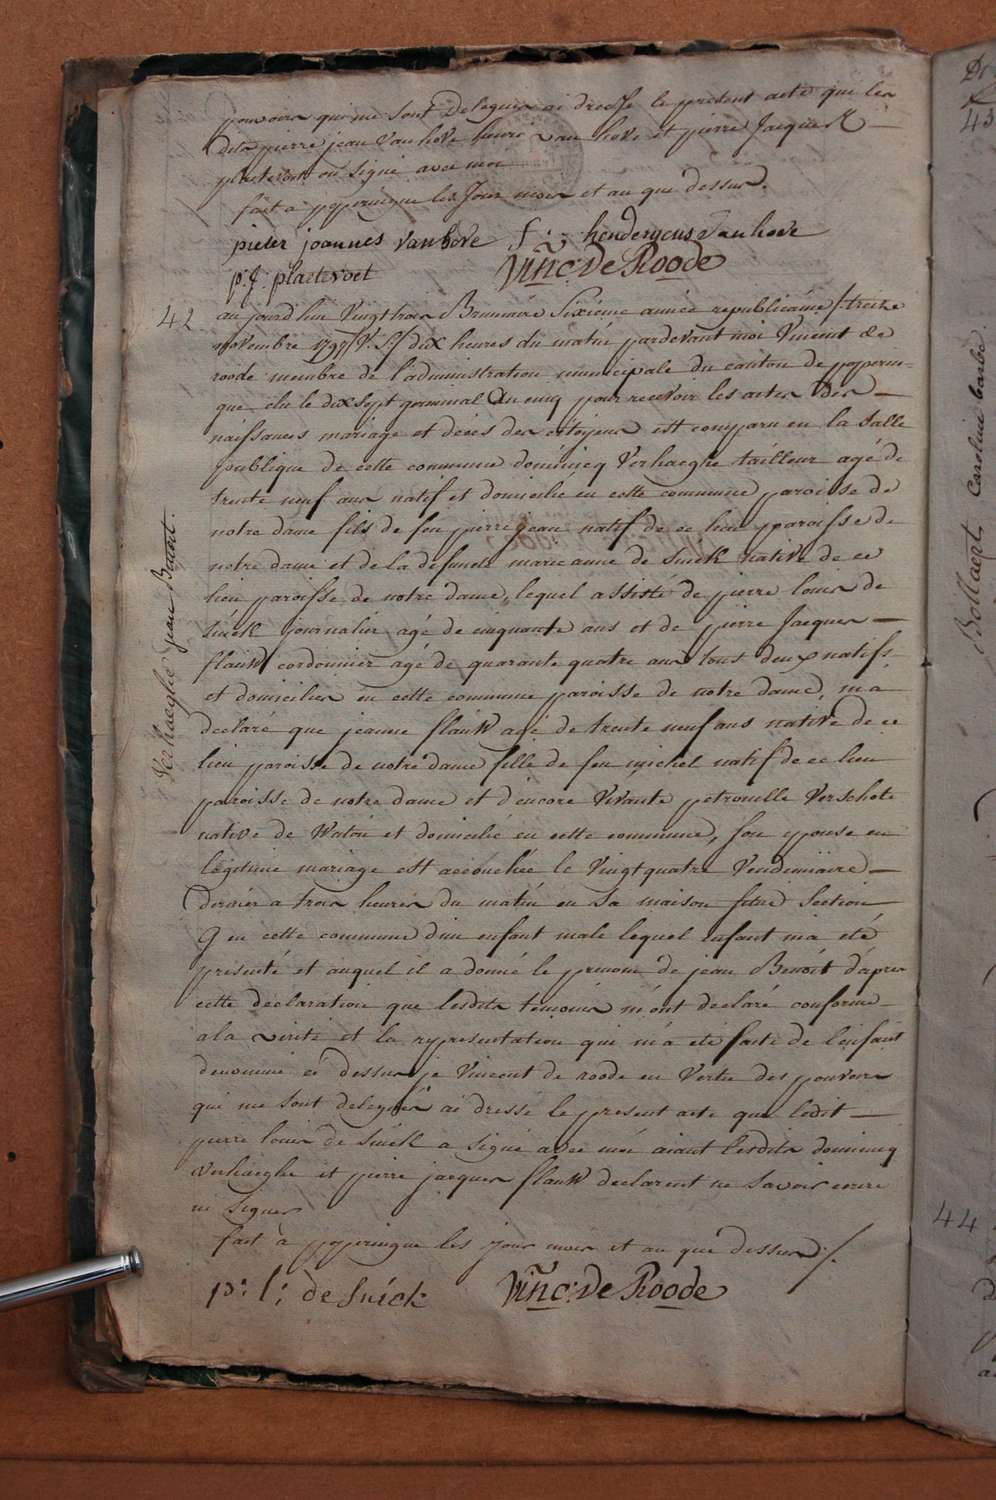 pouvoirs qui me sont delegues ai dresse le present acte que les
dits pierre jean vanhove henri van hove et pierre Jacque
plaetevoet on signé avec moi
fait à poperingue les Jour mois et an que dessus.
pieter joannes vanhove f: hendericus Vanhove
p:J: plaetevoet Vinc: De Roode
42 aujourd'hui Vingt trois Brumaire Sixiéme année republicaine / treize
novembre 1797 V. S./ dix heures du matin pardevant moi Vincent de
roode membre de l'administration municipale du canton de poperin-
gue elu le dix sept germinal an cinq pour recevoir les actes des
naissances mariage et deces des citoyens est comparu en la Salle
publique de cette commune dominicq Verhaeghe tailleur agé de
trente neuf ans natif et domicilie en cette commune paroisse de
notre dame fils de feu pierre jean natif de ce lieu paroisse de
notre dame et de la defuncte marie anne de Suick native de ce
lieu paroisse de notre dame, lequel assisté de pierre louis de
Suick journalier agé de cinquante ans et de pierre Jacques
flauw cordonnier agé de quarante quatre ans tous deux natifs
et domicilies en cette commune paroisse de notre dame, m'a
declaré que jeanne flauw agé de trente neuf ans native de ce
lieu paroisse de notre dame fille de feu michel natif de ce lieu
paroisse de notre dame et d'encore Vivante petronille Verschote
native de Watou et domicilié en cette commune, son epouse en
legitime mariage est accouchée le Vingt quatre Vendemiaire
dernier a trois heures du matin en sa maison situé Section
G en cette commune d'un enfant male lequel enfant m'a eté
presenté et auquel il a donné le prenom de jean Benoit d'apres
cette declaration que lesdits temoins m'ont declaré conforme
a la verité et la representation qui m'a eté faite de l'enfant
denommé ci dessus je Vincent de roode en Vertu des pouvoirs
qui me sont delegués ai dressé le present acte que ledit
pierre louis de Suick a signé avec moi aiant lesdits dominicq
verhaeghe et pierre jacques flauw declarent ne Savoir ecrire
ni signer
fait à poperingue les jour mois et an que dessus /.
p: l: de Suick Vinc: De Roode
Verhaeghe jean Benoit.
43
Bollaert, Caroline barbe.
44